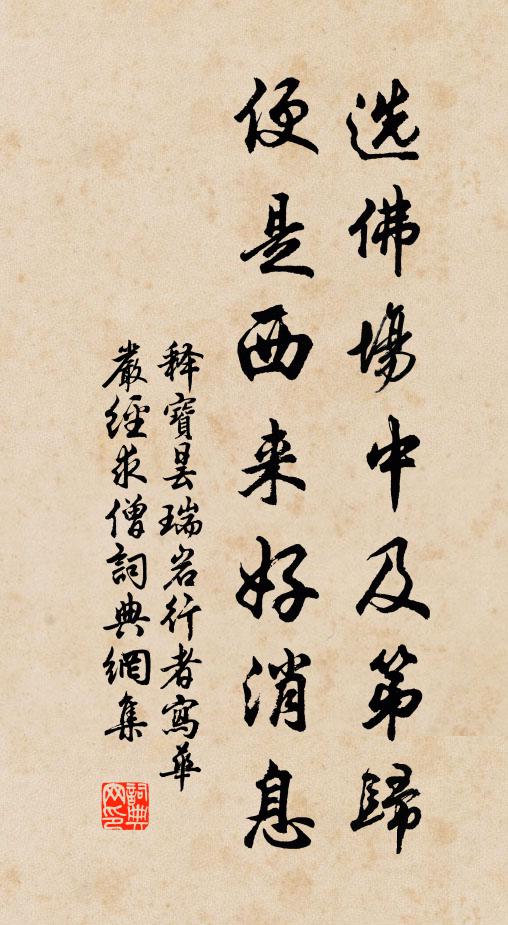 选佛場中及第歸
便是西来好消息
释寶曇瑞岩行者寫華
嚴經求僧詞典網集
詞典网印